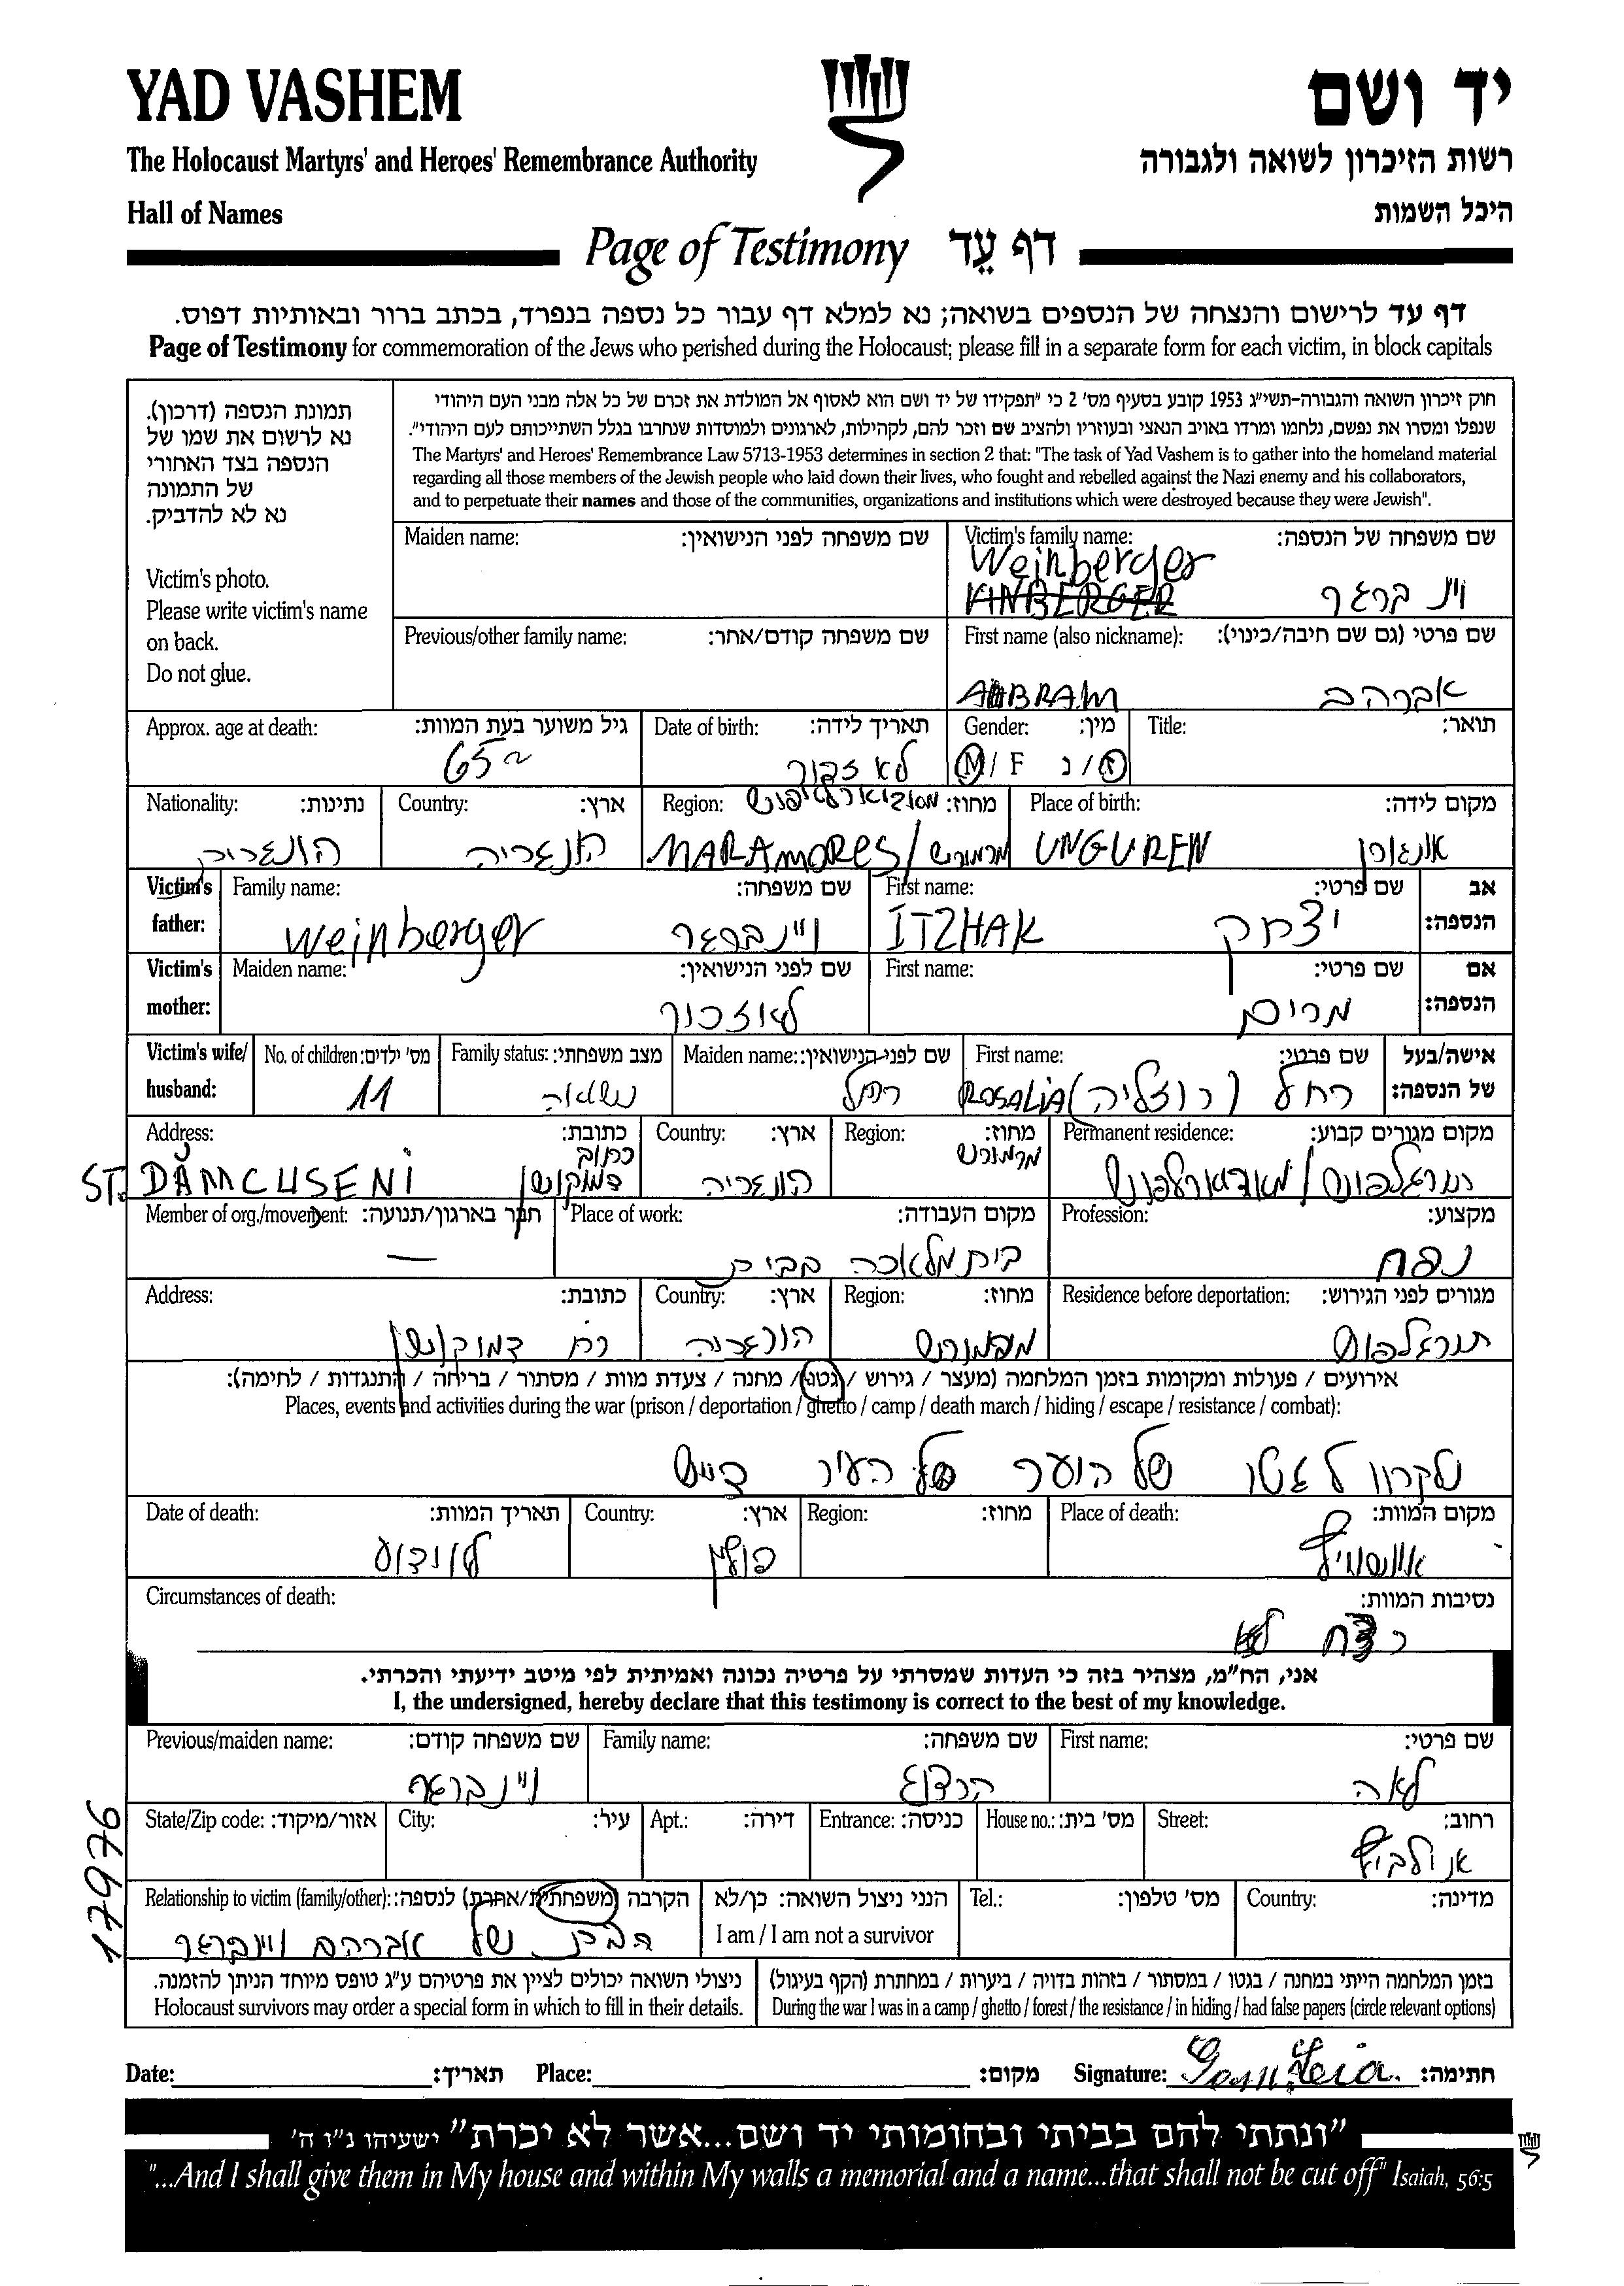 YAD VASHEM
יד ושם
The Holocaust Martyrs' and Heroes' Remembrance Authority
רשות הזיכרון לשואה ולגבורה
Hall of Names
היכל השמות
Page of Testimony דף עֵד
דף עד לרישום והנצחה של הנספים בשואה; נא למלא דף עבור כל נספה בנפרד, בכתב ברור ובאותיות דפוס.
Page of Testimony for commemoration of the Jews who perished during the Holocaust; please fill in a separate form for each victim, in block capitals
תמונת הנספה (דרכון).
נא לרשום את שמו של
הנספה בצד האחורי
של התמונה
נא לא להדביק.
Victim's photo.
Please write victim's name
on back.
Do not glue.
חוק זיכרון השואה והגבורה-תשי"ג 1953 קובע בסעיף מס' 2 כי "תפקידו של יד ושם הוא לאסוף אל המולדת את זכרם של כל אלה מבני העם היהודי
שנפלו ומסרו את נפשם, נלחמו ומרדו באויב הנאצי ובעוזריו ולהציב שם וזכר להם, לקהילות, לארגונים ולמוסדות שנחרבו בגלל השתייכותם לעם היהודי".
The Martyrs' and Heroes' Remembrance Law 5713-1953 determines in section 2 that: "The task of Yad Vashem is to gather into the homeland material
regarding all those members of the Jewish people who laid down their lives, who fought and rebelled against the Nazi enemy and his collaborators,
and to perpetuate their names and those of the communities, organizations and institutions which were destroyed because they were Jewish".
Maiden name: שם משפחה לפני הנישואין:
Victim's family name: שם משפחה של הנספה:
Weinberger
VINBERGER ויינברגר
Previous/other family name: שם משפחה קודם/אחר:
First name (also nickname): שם פרטי (גם שם חיבה/כינוי):
ABRAM אברהם
Approx. age at death: גיל משוער בעת המוות:
65 ~
Date of birth: תאריך לידה:
לא זכור
Gender: מין:
M / F נ / ז
Title: תואר:
Nationality: נתינות:
הונגריה
Country: ארץ:
הונגריה
Region: מחוז:
MARAMORES / מרמורש
Place of birth: מקום לידה:
UNGUREN אונגורן
Victim's father: אב הנספה:
Family name: שם משפחה:
Weinberger ויינברגר
First name: שם פרטי:
ITZHAK יצחק
Victim's mother: אם הנספה:
Maiden name: שם לפני הנישואין:
לא זכור
First name: שם פרטי:
מרים
Victim's wife/ husband: אישה/בעל של הנספה:
No. of children: מס' ילדים:
11
Family status: מצב משפחתי:
נשואה
Maiden name: שם לפני הנישואין:
רחל
First name: שם פרטי:
ROSALIA (רוזליה) רחל
Address: כתובת:
ST. DĂMCUSENI
רחוב
Country: ארץ:
הונגריה
Region: מחוז:
מרמורש
Permanent residence: מקום מגורים קבוע:
Member of org./movement: חבר בארגון/תנועה:
—
Place of work: מקום העבודה:
בית מלאכה בבית
Profession: מקצוע:
נפח
Address: כתובת:
Country: ארץ:
הונגריה
Region: מחוז:
מרמורש
Residence before deportation: מגורים לפני הגירוש:
אירועים / פעולות ומקומות בזמן המלחמה (מעצר / גירוש / גטו / מחנה / צעדת מוות / מסתור / בריחה / התנגדות / לחימה):
Places, events and activities during the war (prison / deportation / ghetto / camp / death march / hiding / escape / resistance / combat):
נלקחו לגטו של היער של העיר דיש
Date of death: תאריך המוות:
לא ידוע
Country: ארץ:
פולין
Region: מחוז:
Place of death: מקום המוות:
אושוויץ
Circumstances of death: נסיבות המוות:
נרצח
אני, הח"מ, מצהיר בזה כי העדות שמסרתי על פרטיה נכונה ואמיתית לפי מיטב ידיעתי והכרתי.
I, the undersigned, hereby declare that this testimony is correct to the best of my knowledge.
Previous/maiden name: שם משפחה קודם:
ויינברגר
Family name: שם משפחה:
First name: שם פרטי:
לאה
State/Zip code: אזור/מיקוד:
City: עיר:
Apt.: דירה:
Entrance: כניסה:
House no.: מס' בית:
Street: רחוב:
17976
Relationship to victim (family/other): הקרבה (משפחתית/אחרת) לנספה:
הבת של אברהם ויינברגר
הנני ניצול השואה: כן/לא
I am / I am not a survivor
Tel.: מס' טלפון:
Country: מדינה:
ניצולי השואה יכולים לציין את פרטיהם ע"ג טופס מיוחד הניתן להזמנה.
Holocaust survivors may order a special form in which to fill in their details.
בזמן המלחמה הייתי במחנה / בגטו / במסתור / בזהות בדויה / ביערות / במחתרת (הקף בעיגול)
During the war I was in a camp / ghetto / forest / the resistance / in hiding / had false papers (circle relevant options)
Date: תאריך: Place: מקום: Signature: חתימה:
"ונתתי להם בביתי ובחומותי יד ושם...אשר לא יכרת" ישעיהו נ"ו ה'
"...And I shall give them in My house and within My walls a memorial and a name...that shall not be cut off" Isaiah, 56:5